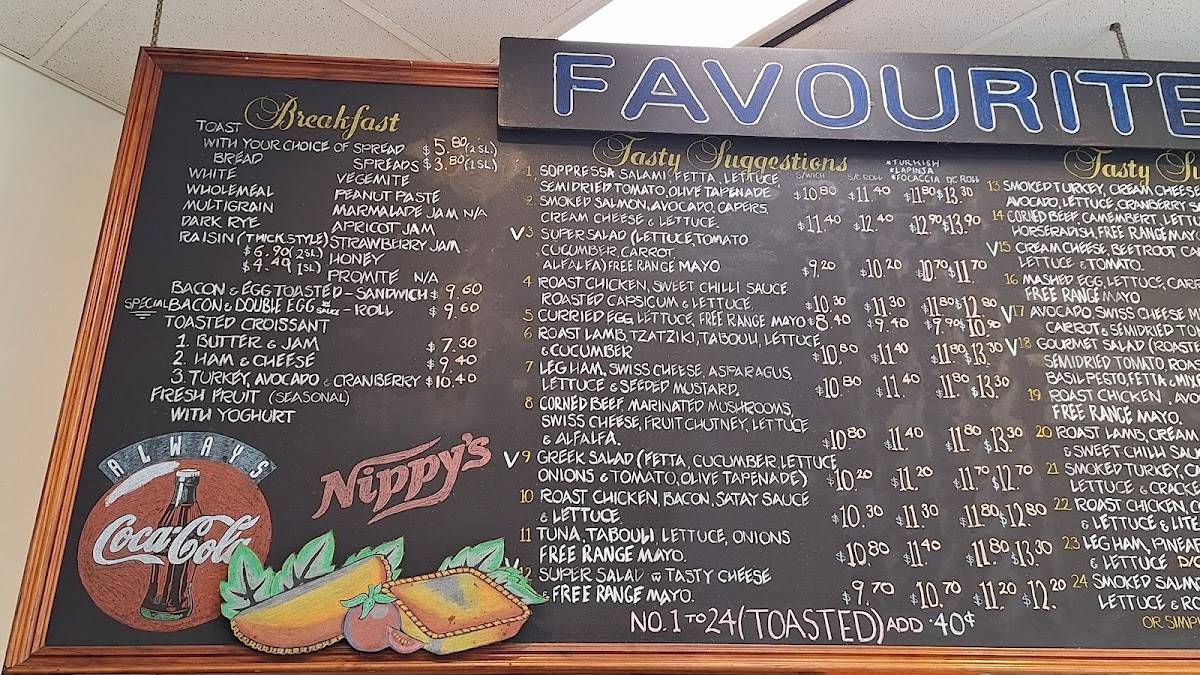 FAVOURITE
Breakfast
TOAST
WITH YOUR CHOICE OF SPREAD $5.80 (2SL)
BREAD SPREADS $3.80 (1SL)
WHITE VEGEMITE
WHOLEMEAL PEANUT PASTE
MULTIGRAIN MARMALADE JAM N/A
DARK RYE APRICOT JAM
RAISIN (THICK STYLE) STRAWBERRY JAM
$6.90 (2SL) HONEY
$4.49 (1SL) PROMITE N/A
BACON & EGG TOASTED - SANDWICH $9.60
SPECIAL BACON & DOUBLE EGG - ROLL $9.60
TOASTED CROISSANT
1. BUTTER & JAM $7.30
2. HAM & CHEESE $9.40
3. TURKEY, AVOCADO & CRANBERRY $10.40
FRESH FRUIT (SEASONAL)
WITH YOGHURT
ALWAYS
Coca-Cola
Nippy's
Tasty Suggestions
*TURKISH
*LAPINJA
S/WICH S/C ROLL *FOCACCIA DC ROLL
1. SOPPRESSA SALAMI, FETTA, LETTUCE
SEMIDRIED TOMATO, OLIVE TAPENADE $10.80 $11.40 $11.80 $13.30
2. SMOKED SALMON, AVOCADO, CAPERS,
CREAM CHEESE & LETTUCE. $11.40 $12.40 $12.90 $13.90
V 3 SUPER SALAD (LETTUCE, TOMATO
CUCUMBER, CARROT,
ALFALFA) FREE RANGE MAYO $9.20 $10.20 $10.70 $11.70
4 ROAST CHICKEN, SWEET CHILLI SAUCE
ROASTED CAPSICUM & LETTUCE $10.30 $11.30 $11.80 $12.80
5 CURRIED EGG, LETTUCE, FREE RANGE MAYO $8.40 $9.40 $9.90 $10.90
6 ROAST LAMB, TZATZIKI, TABOULI, LETTUCE
& CUCUMBER $10.80 $11.40 $11.80 $13.30
7 LEG HAM, SWISS CHEESE, ASPARAGUS,
LETTUCE & SEEDED MUSTARD. $10.80 $11.40 $11.80 $13.30
8 CORNED BEEF, MARINATED MUSHROOMS,
SWISS CHEESE, FRUIT CHUTNEY, LETTUCE
& ALFALFA. $10.80 $11.40 $11.80 $13.30
V 9 GREEK SALAD (FETTA, CUCUMBER, LETTUCE
ONIONS & TOMATO, OLIVE TAPENADE) $10.20 $11.20 $11.70 $12.70
10 ROAST CHICKEN, BACON, SATAY SAUCE
& LETTUCE. $10.30 $11.30 $11.80 $12.80
11 TUNA, TABOULI, LETTUCE, ONIONS
FREE RANGE MAYO. $10.80 $11.40 $11.80 $13.30
V 12 SUPER SALAD w TASTY CHEESE
& FREE RANGE MAYO. $9.70 $10.70 $11.20 $12.20
NO. 1 TO 24 (TOASTED) ADD .40¢
Tasty
13 SMOKED TURKEY, CREAM CHEESE
AVOCADO, LETTUCE, CRANBERRY
14 CORNED BEEF, CAMEMBERT,
HORSERADISH, FREE RANGE MAYO
V 15 CREAM CHEESE, BEETROOT
LETTUCE & TOMATO.
16 MASHED EGG, LETTUCE,
FREE RANGE MAYO
V 17 AVOCADO, SWISS CHEESE
CARROT & SEMIDRIED
V 18 GOURMET SALAD (ROASTE
SEMIDRIED TOMATO,
BASIL PESTO, FETTA &
19 ROAST CHICKEN,
FREE RANGE MAYO.
20 ROAST LAMB, CREAM
& SWEET CHILLI
21 SMOKED TURKEY,
LETTUCE &
22 ROAST CHICKEN,
& LETTUCE &
23 LEG HAM,
& LETTUCE
24 SMOKED
LETTUCE &
OR